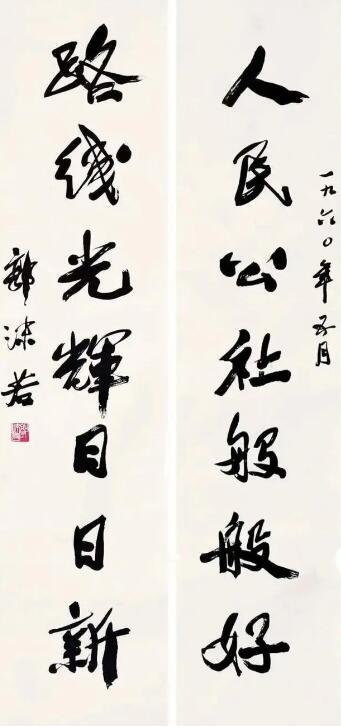 一九六〇年五月
人民公社般般好
路线光辉日日新
郭沫若